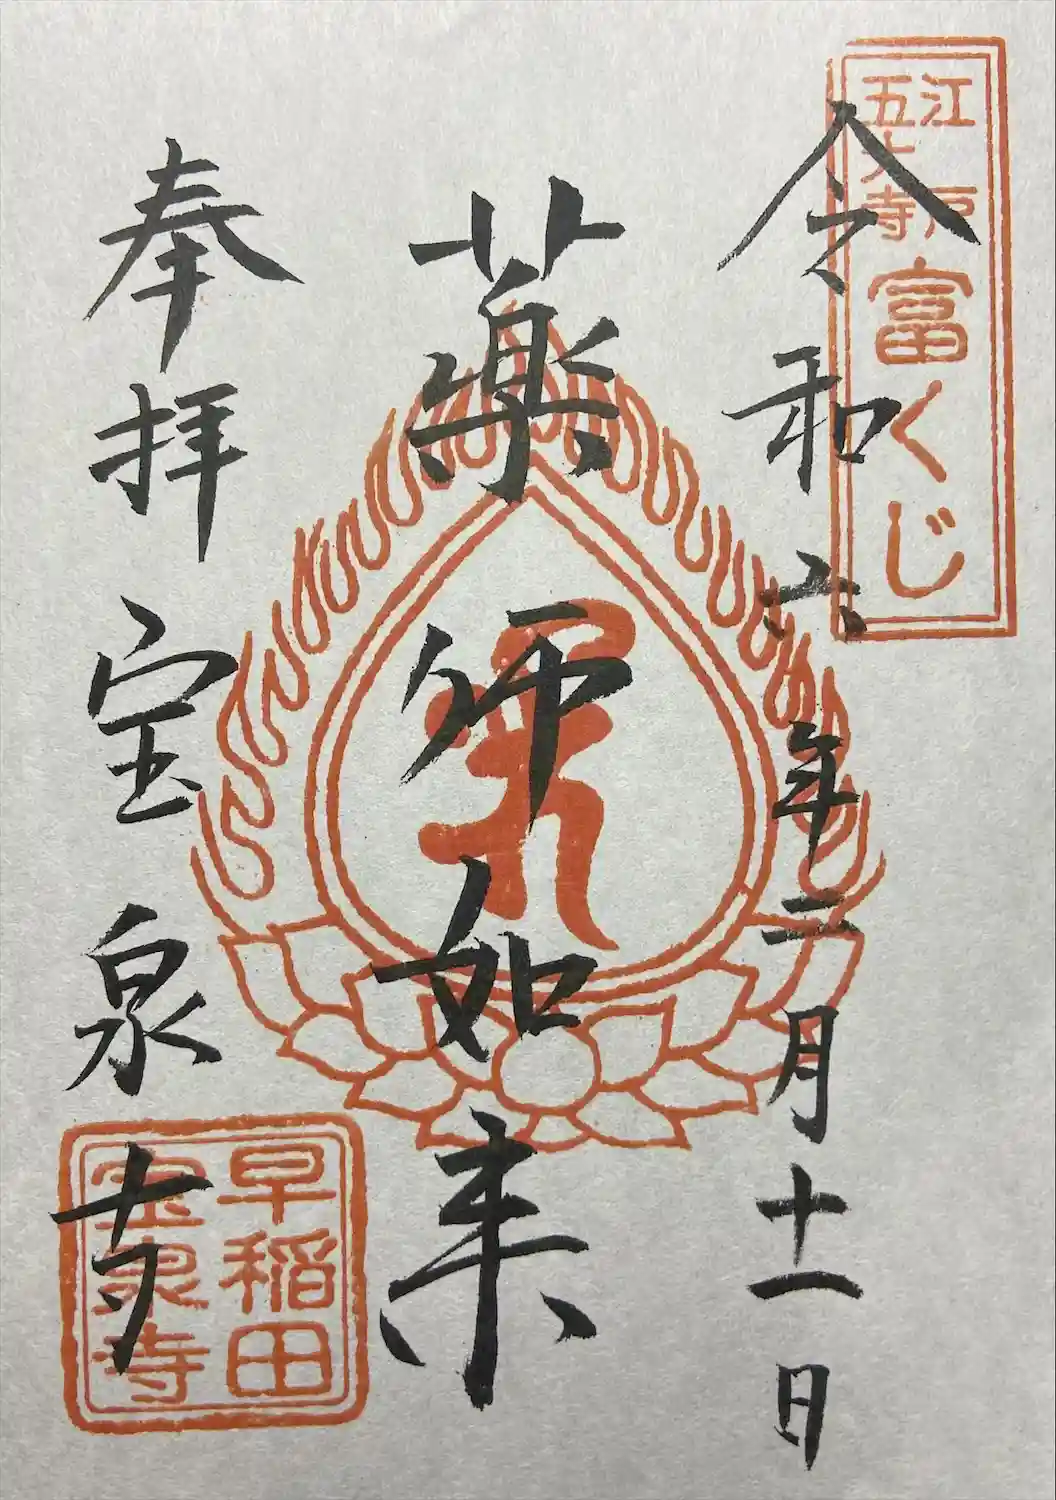 江戸
五大寺
富くじ
令和六年二月十一日
薬师如来
奉拝 宝泉寺
早稲田
宝泉寺